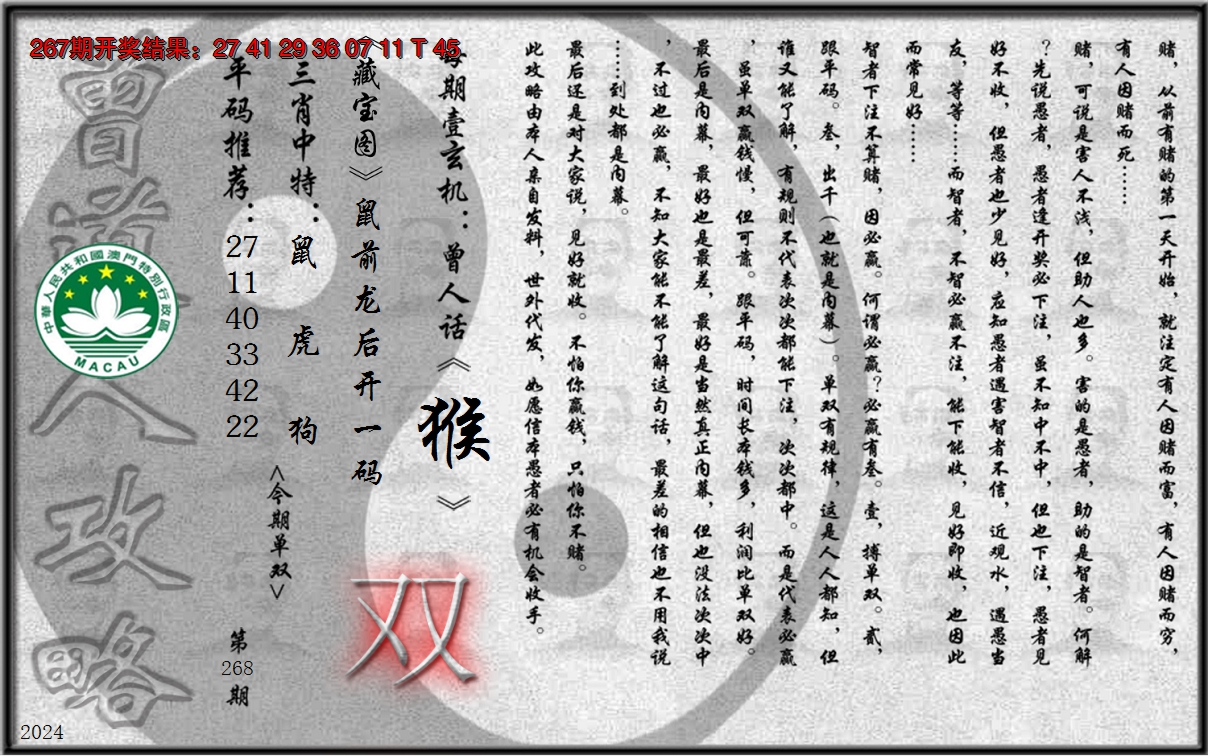 267期开奖结果：27 41 29 36 07 11 T 45
赌，从前有赌的第一天开始，就注定有人因赌而富，有人因赌而穷，
有人因赌而死……
赌，可说是害人不浅，但助人也多。害的是愚者，助的是智者。何解
？先说愚者，愚者逢开奖必下注，虽不知中不中，但也下注，愚者见
好不收，但愚者也少见好，应知愚者遇害智者不信，近观水，遇愚当
友，等等……而智者，不智必赢不注，能下能收，见好即收，也因此
而常见好……
智者下注不算赌，因必赢。何谓必赢？必赢有叁。壹，搏单双。贰，
跟平码。叁，出千（也就是内幕）。单双有规律，这是人人都知，但
谁又能了解，有规则不代表次次都能下注，次次都中。而是代表必赢
，虽单双赢钱慢，但可靠。跟平码，时间长本钱多，利润比单双好。
最后是内幕，最好也是最差，最好是当然真正内幕，但也没法次次中
，不过也必赢，不知大家能不能了解这句话，最差的相信也不用我说
……到处都是内幕。
最后还是对大家说，见好就收。不怕你赢钱，只怕你不赌。
此攻略由本人亲自发料，世外代发，如愿信本愚者必有机会收手。
每期壹玄机：曾人话《猴》
《藏宝图》鼠前龙后开一码
双
三肖中特：鼠 虎 狗
<今期单双>
平码推荐：27 11 40 33 42 22
第268期
曾道人攻略
中華人民共和國澳門特別行政區
MACAU
2024